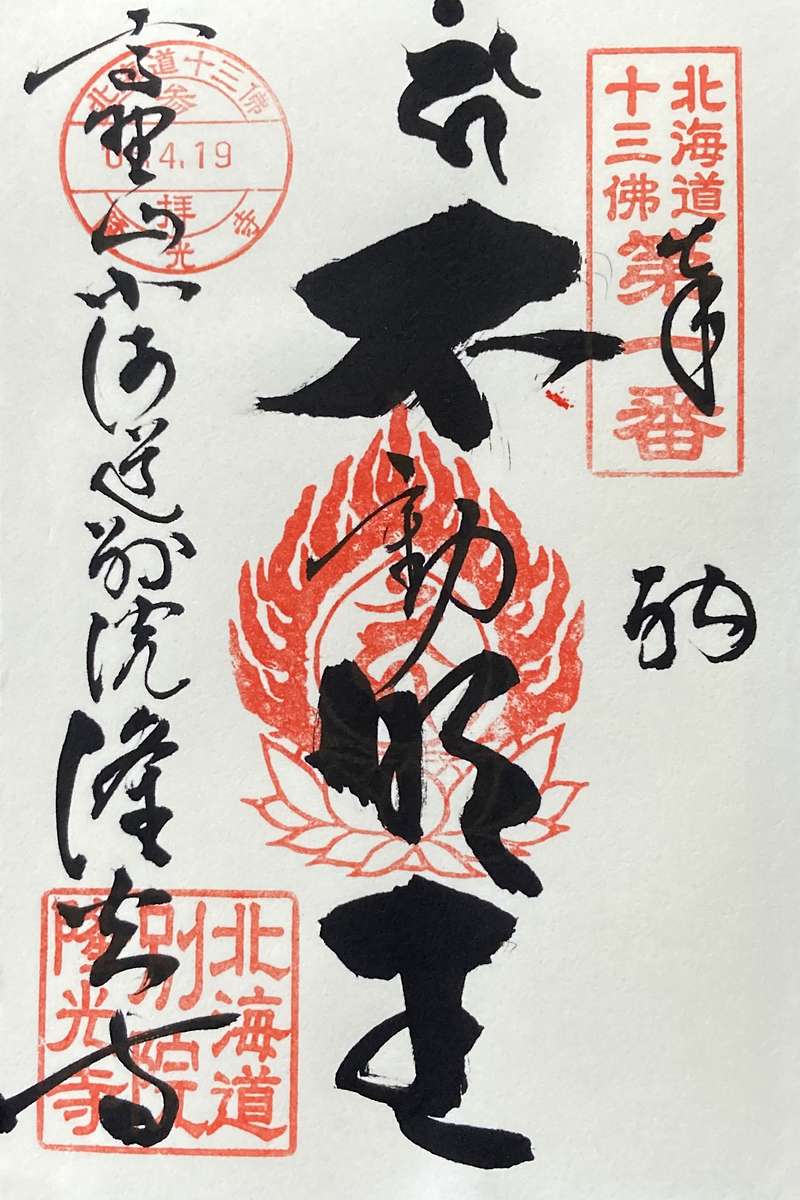 奉
納
北海道
十三佛
第一番
不動明王
高野山北海道別院隆光寺
北海道十三佛
参
4.19
拝
光寺
北海道
別院
隆光寺